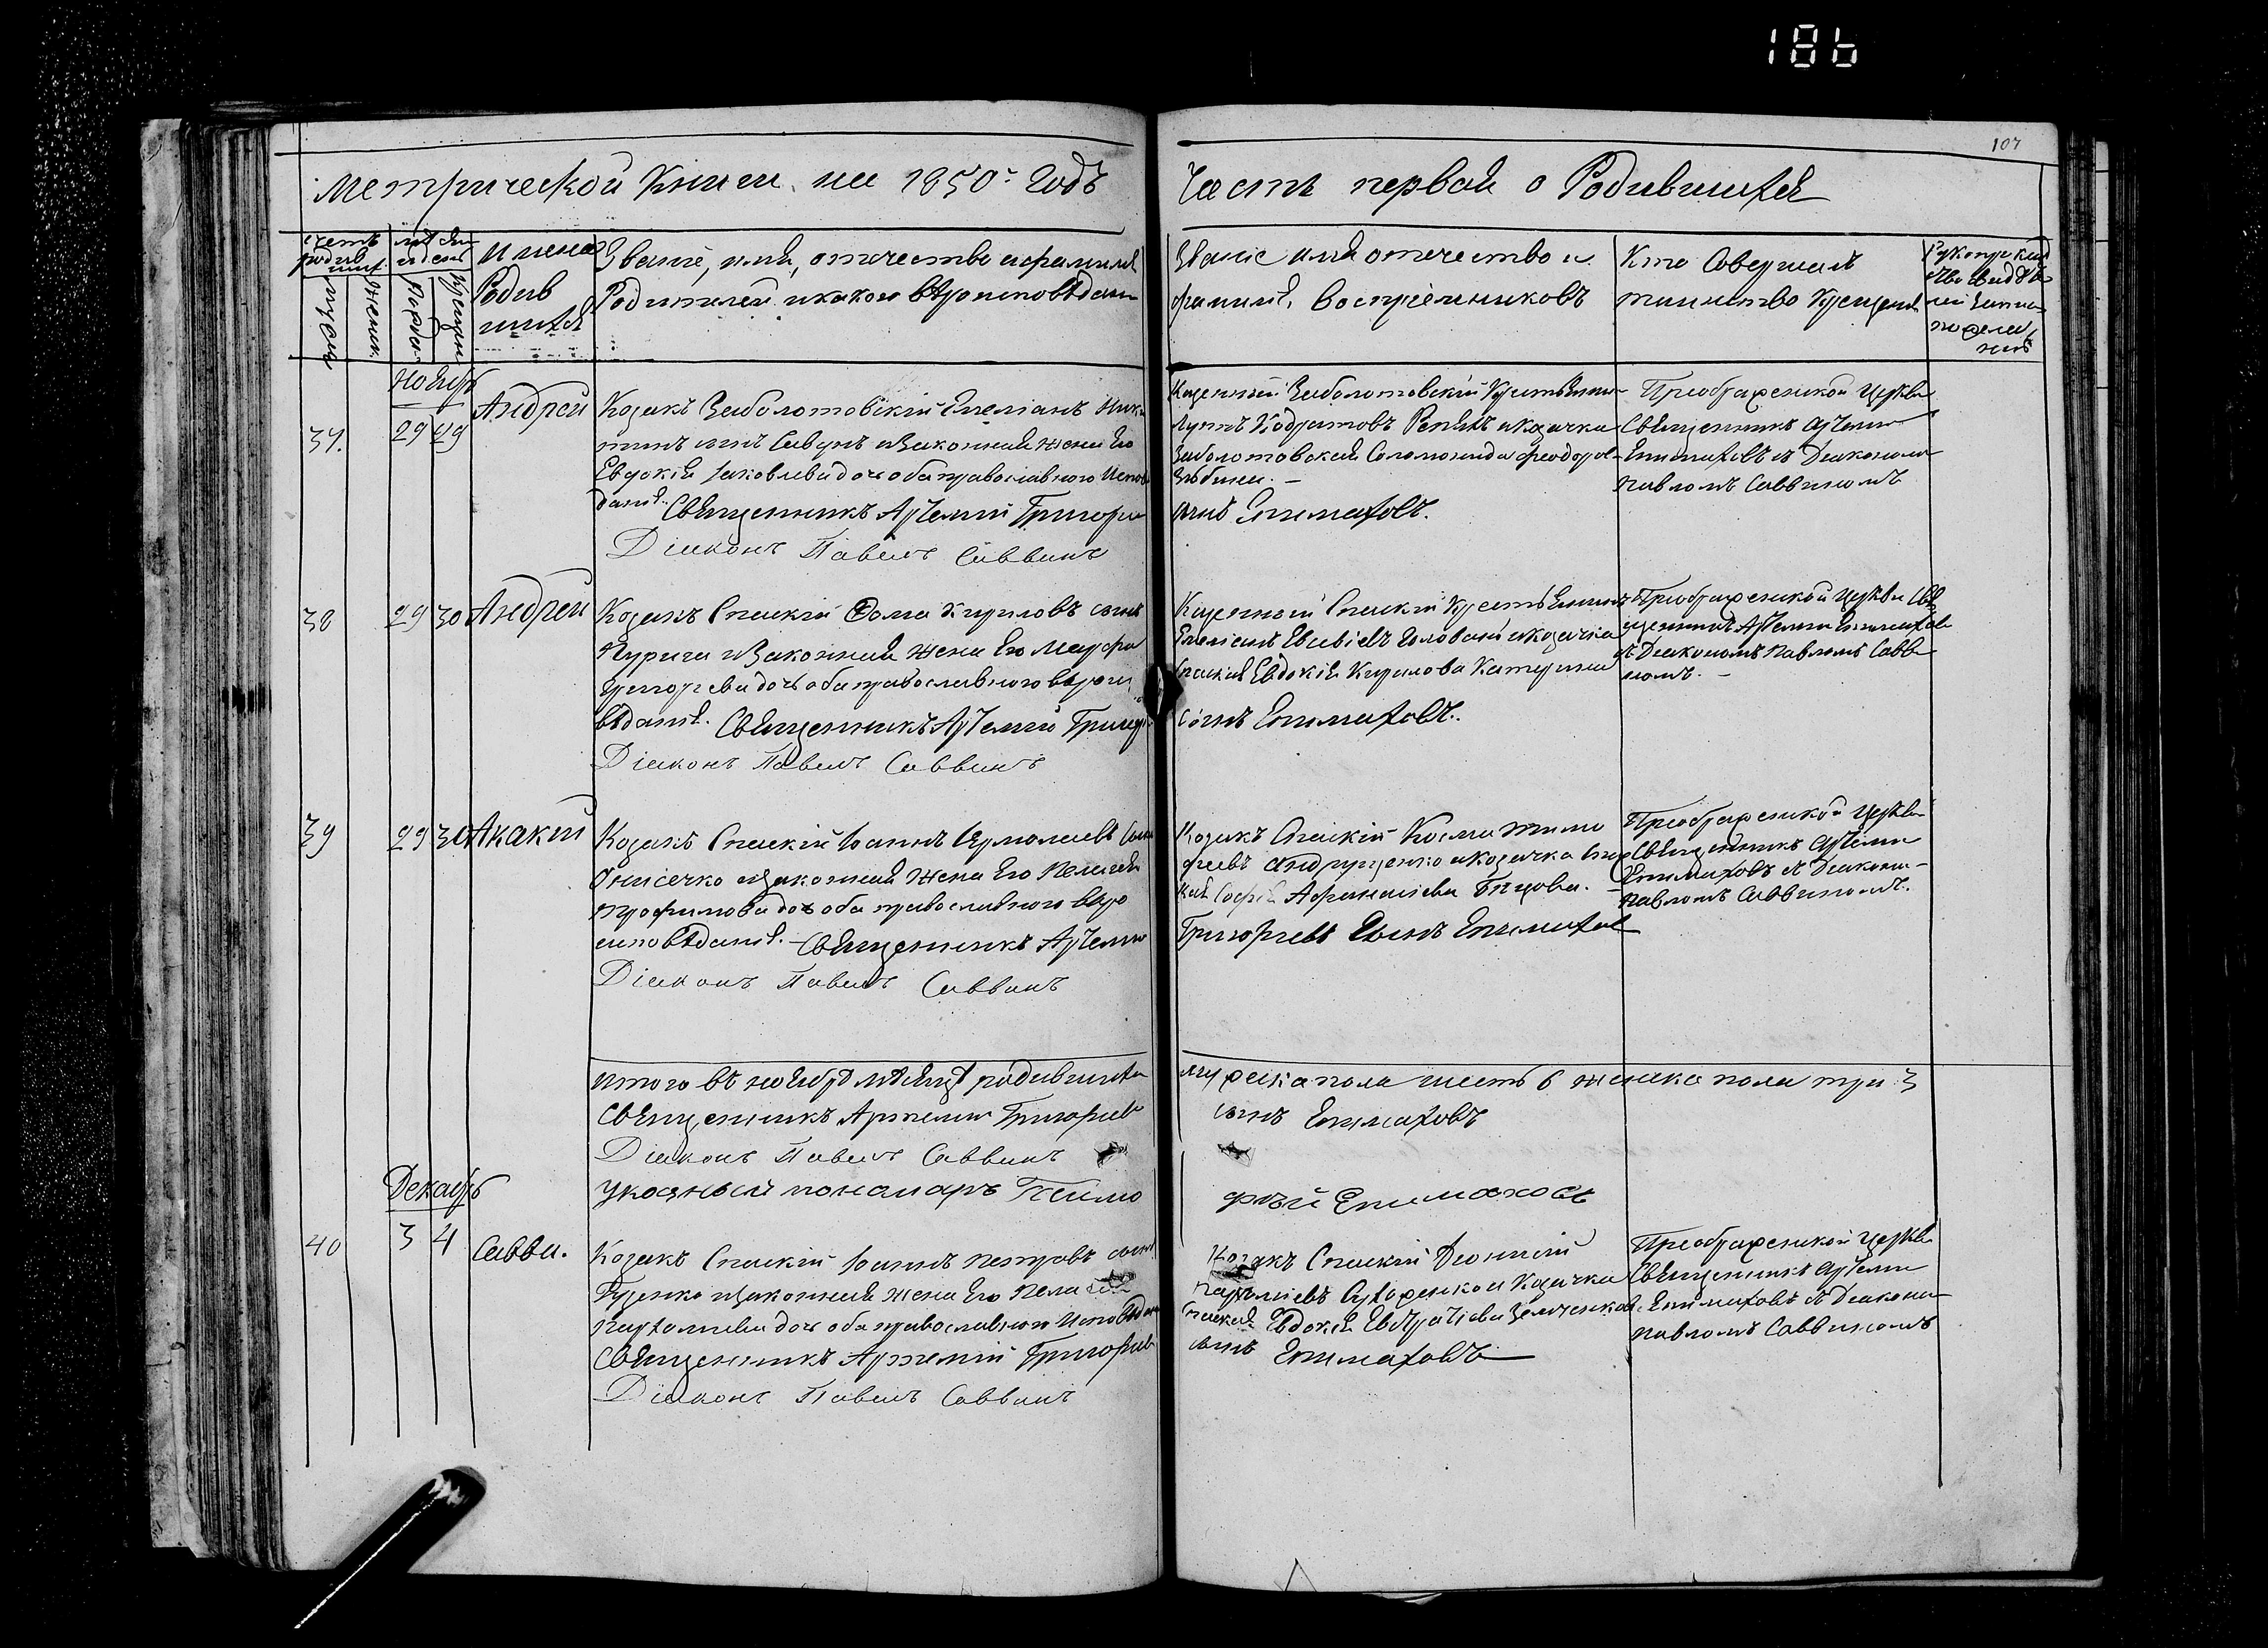 186
107
Метрической Книги на 1850й Годъ
Часть первая о Родившихся
счетъ родивших.
мужеска
женск.
мѣсяцъ и день
Рожден.
Крещен.
имена Родившихся
Званіе, имя, отчество и фамилія
Родителей и какого вѣроисповѣданія
Званіе имя отчество и
фамилія Воспріемниковъ
Кто Совершалъ
таинство Крещенія
Рукоприкладство свидѣтелей записи по желанію
Ноябрь
37.
29 29
Андрей
Козакъ Заболотовскій Емеліанъ Никитинъ сынъ Савунъ и Законная жена Его
Евдокія Іаковлева дочь оба православного Исповѣданія.
Священникъ Артемій Григорьевъ
Діаконъ Павелъ Саввинъ
Казенный Заболотовскій Крестьянинъ
и козачка
Заболотовская Соломонида Феодорова
сынъ Епимаховъ.
Преображенской Церкви
Священникъ Артемій
Епимаховъ съ Діакономъ
Павломъ Саввиномъ
38
29 30
Андрей
Козакъ Спаскій Фома Кириловъ сынъ
и Законная жена Его Марфа
Григорьева дочь оба православного вѣроисповѣданія.
Священникъ Артемій Григорьевъ
Діаконъ Павелъ Саввинъ
Казенный Спаскій Крестьянинъ
Емеліанъ и козачка
Спаская Евдокія Кирилова
сынъ Епимаховъ.
Преображенской Церкви Священникъ Артемій Епимаховъ
съ Діакономъ Павломъ Саввиномъ.
39
29 30
Акакій
Козакъ Спаскій Іоаннъ Ермолаевъ Сынъ
Онисечко и Законная жена Его Пелагія
Трофимова дочь оба православного вѣроисповѣданія.
Священникъ Артемій
Діаконъ Павелъ Саввинъ
Козакъ Спаскій Косма Тимофеевъ Андрущенко и козачка Спаская
Софія Афанасіева
Григорьевъ Сынъ Епимаховъ
Преображенской Церкви
Священникъ Артемій
Епимаховъ съ Діакономъ
Павломъ Саввиномъ.
итого въ ноябрѣ мѣсяцѣ родившихся
мужеска пола шесть 6 женска пола три 3
Священникъ Артемій Григорьевъ
сынъ Епимаховъ
Діаконъ Павелъ Саввинъ
указный пономарь Тимофѣй Епимаховъ
Декабрь
40
3 4
Савва.
Козакъ Спаскій Іоаннъ Петровъ сынъ
и Законная жена Его Пелагія
дочь оба православного Исповѣданія
Священникъ Артемій Григорьевъ
Діаконъ Павелъ Саввинъ
Козакъ Спаскій Діонисій
и Козачка
Спаская Евдокія
сынъ Епимаховъ
Преображенской Церкви
Священникъ Артемій
Епимаховъ съ Діакономъ
Павломъ Саввиномъ